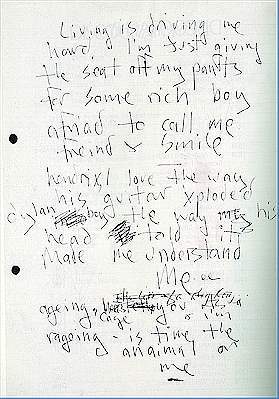 Living is driving me
hard, I'm just giving
the seat off my pants
for some rich boy
afriad to call me
freind & smile
hendrix I love the way
his guitar xploded
dylan boy the way his
head told it
made me understand
Me
ageing,
cage
rageing - is time the
anaimal or
me